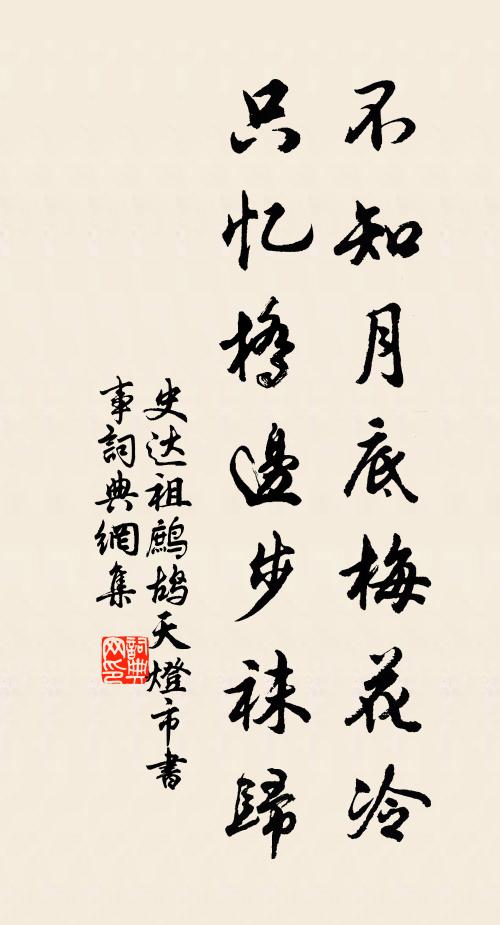 不知月底梅花冷
只忆橋邊步袜歸
史达祖鷓鴣天燈市書
事詞典網集
詞典
网印